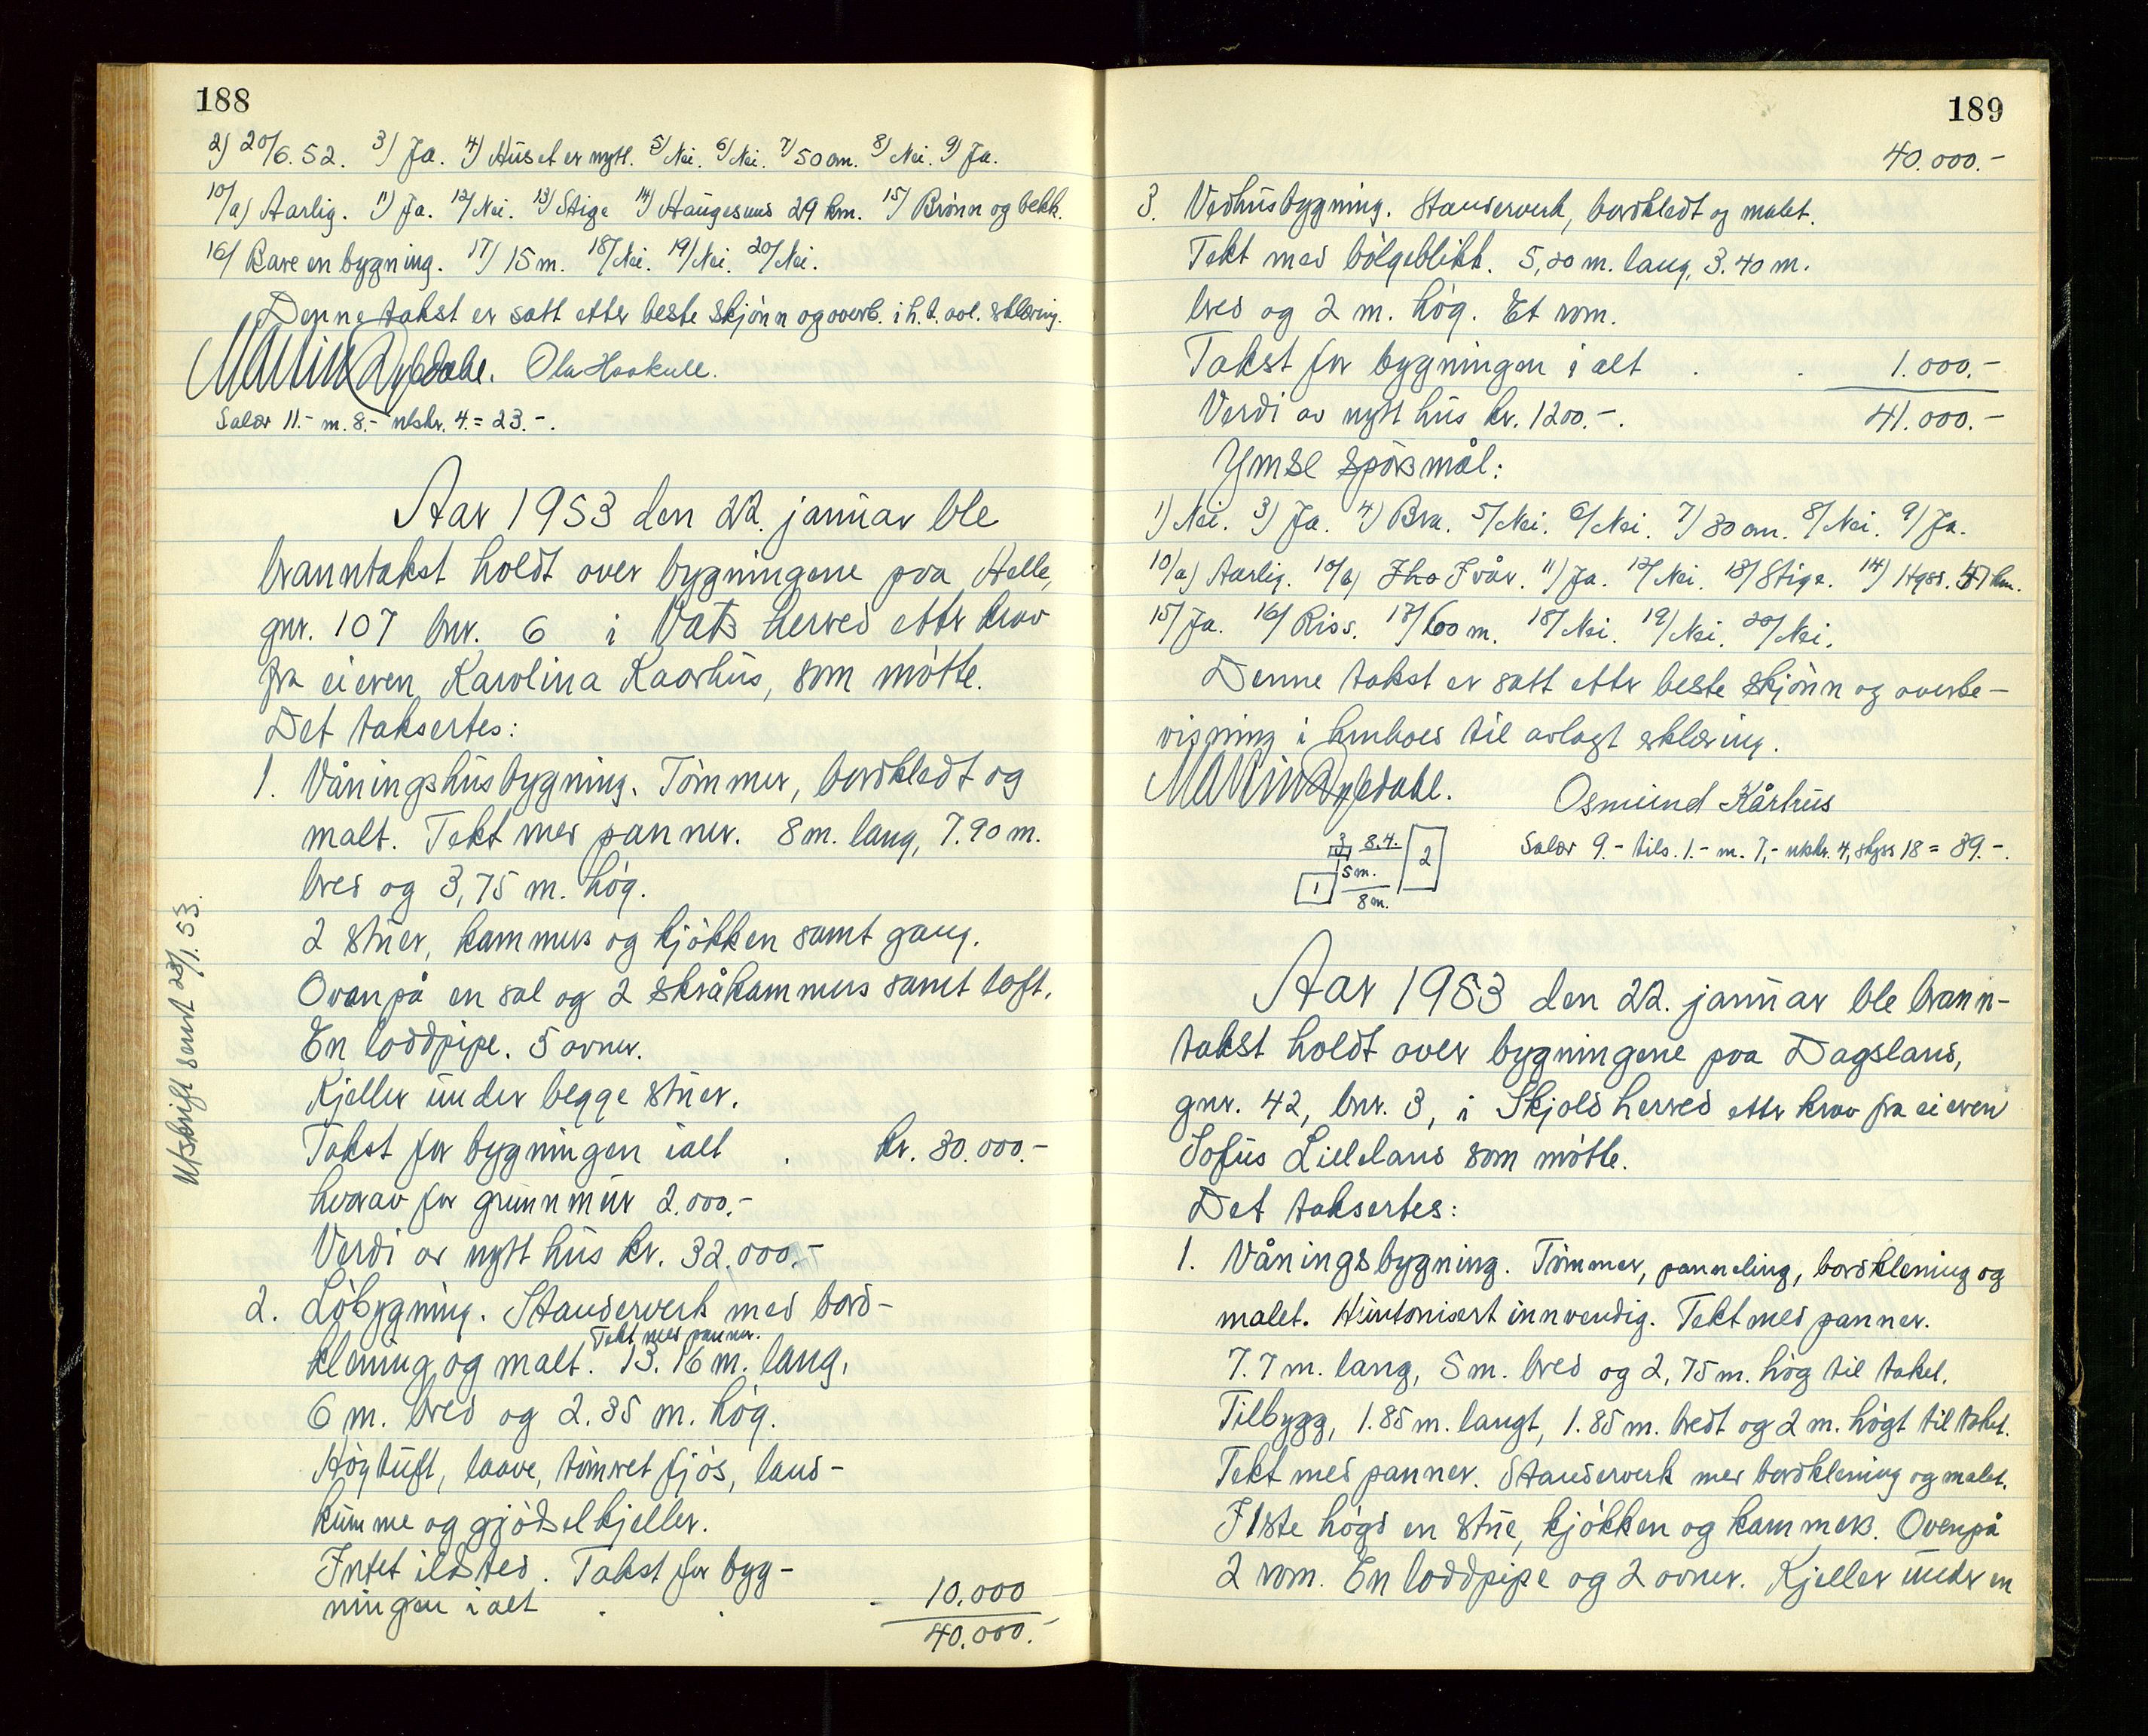 188
2) 20/6. 52. 3) Ja. 4) Huset er nytt. 5/ Nei. 6/ Nei. 7/ 50 cm. 8/ Nei. 9) Ja.
10/a) Aarlig. 11) Ja. 12/ Nei. 13/ Stige 14) Haugesund 29 km. 15/ Brönn og bekk.
16/ Bare en bygning. 17) 15 m. 18/ Nei. 19/ Nei. 20/ Nei.
Denne takst er satt etter beste skjönn og overb. i h.t. avl. erklæring.
Martin Dybdahl. Ola Haakull.
Salær 11.- m. 8.- utskr. 4. = 23.-.
Aar 1953 den 22. januar ble
branntakst holdt over bygningene paa Helle,
gnr. 107 bnr. 6 i Vats herred etter krav
fra eieren Karolina Kaarhus, som mötte.
Det taksertes:
1. Våningshusbygning. Tömmer, bordkledt og
malt. Tekt med panner. 8 m. lang, 7.90 m.
bred og 3,75 m. hög.
2 stuer, kammers og kjökken samt gang.
Ovanpå en sal og 2 skråkammers samt loft.
En loddpipe. 5 ovner.
Kjeller under begge stuer.
Takst for bygningen ialt . kr. 30.000.-
hvorav for grunnmur 2.000.-
Verdi av nytt hus kr. 32.000.-
2. Löbygning. Standerverk med bord-
Tekt med panner.
klening og malt. 13.16 m. lang,
6 m. bred og 2.35 m. hög.
Höytuft, laave, tömret fjös, land-
kumme og gjödselkjeller.
Intet ildsted. Takst for byg-
ningen i alt . . - 10.000
40.000.-
Utskrift sent 23/1. 53.
189
40.000.-
3. Vedhusbygning. Standerverk, bordkledt og malet.
Tekt med bölgeblikk. 5,20 m. lang, 3.40 m.
bred og 2 m. hög. Et rom.
Takst for bygningen i alt . . 1.000.-
Verdi av nytt hus kr. 1200.-. 41.000.-
Ymse spörsmål:
1) Nei. 3) Ja. 4) Bra. 5/ Nei. 6/ Nei. 7) 30 cm. 8/ Nei. 9) Ja.
10/a) Aarlig. 10/b) I två. 11) Ja. 12/ Nei. 13/ Stige. 14) Hgsd. km.
15/ Ja. 16/ Riss. 17/ 600 m. 18/ Nei. 19/ Nei. 20/ Nei.
Denne takst er satt etter beste skjönn og overbe-
visning i henhold til avlagt erklæring.
Martin Dybdahl. Osmund Kårhus
Salær 9.- tils. 1.- m. 7,- utskr. 4, skyss 18 = 39.-.
3 8.4. 2
5 m.
1 8 m.
Aar 1953 den 22. januar ble brann-
takst holdt over bygningene paa Dagsland,
gnr. 42, bnr. 3, i Skjold herred etter krav fra eieren
Sofus Lilleland som mötte.
Det taksertes:
1. Våningsbygning. Tömmer, panneling, bordklening og
malet. Huntonisert innvendig. Tekt med panner.
7.7 m. lang, 5 m. bred og 2,75 m. hög til taket.
Tilbygg, 1.85 m. langt, 1.85 m. bredt og 2 m. högt til taket.
Tekt med panner. Standerverk med bordklening og malet.
I 1ste högd en stue, kjökken og kammers. Ovenpå
2 rom. En loddpipe og 2 ovner. Kjeller under en